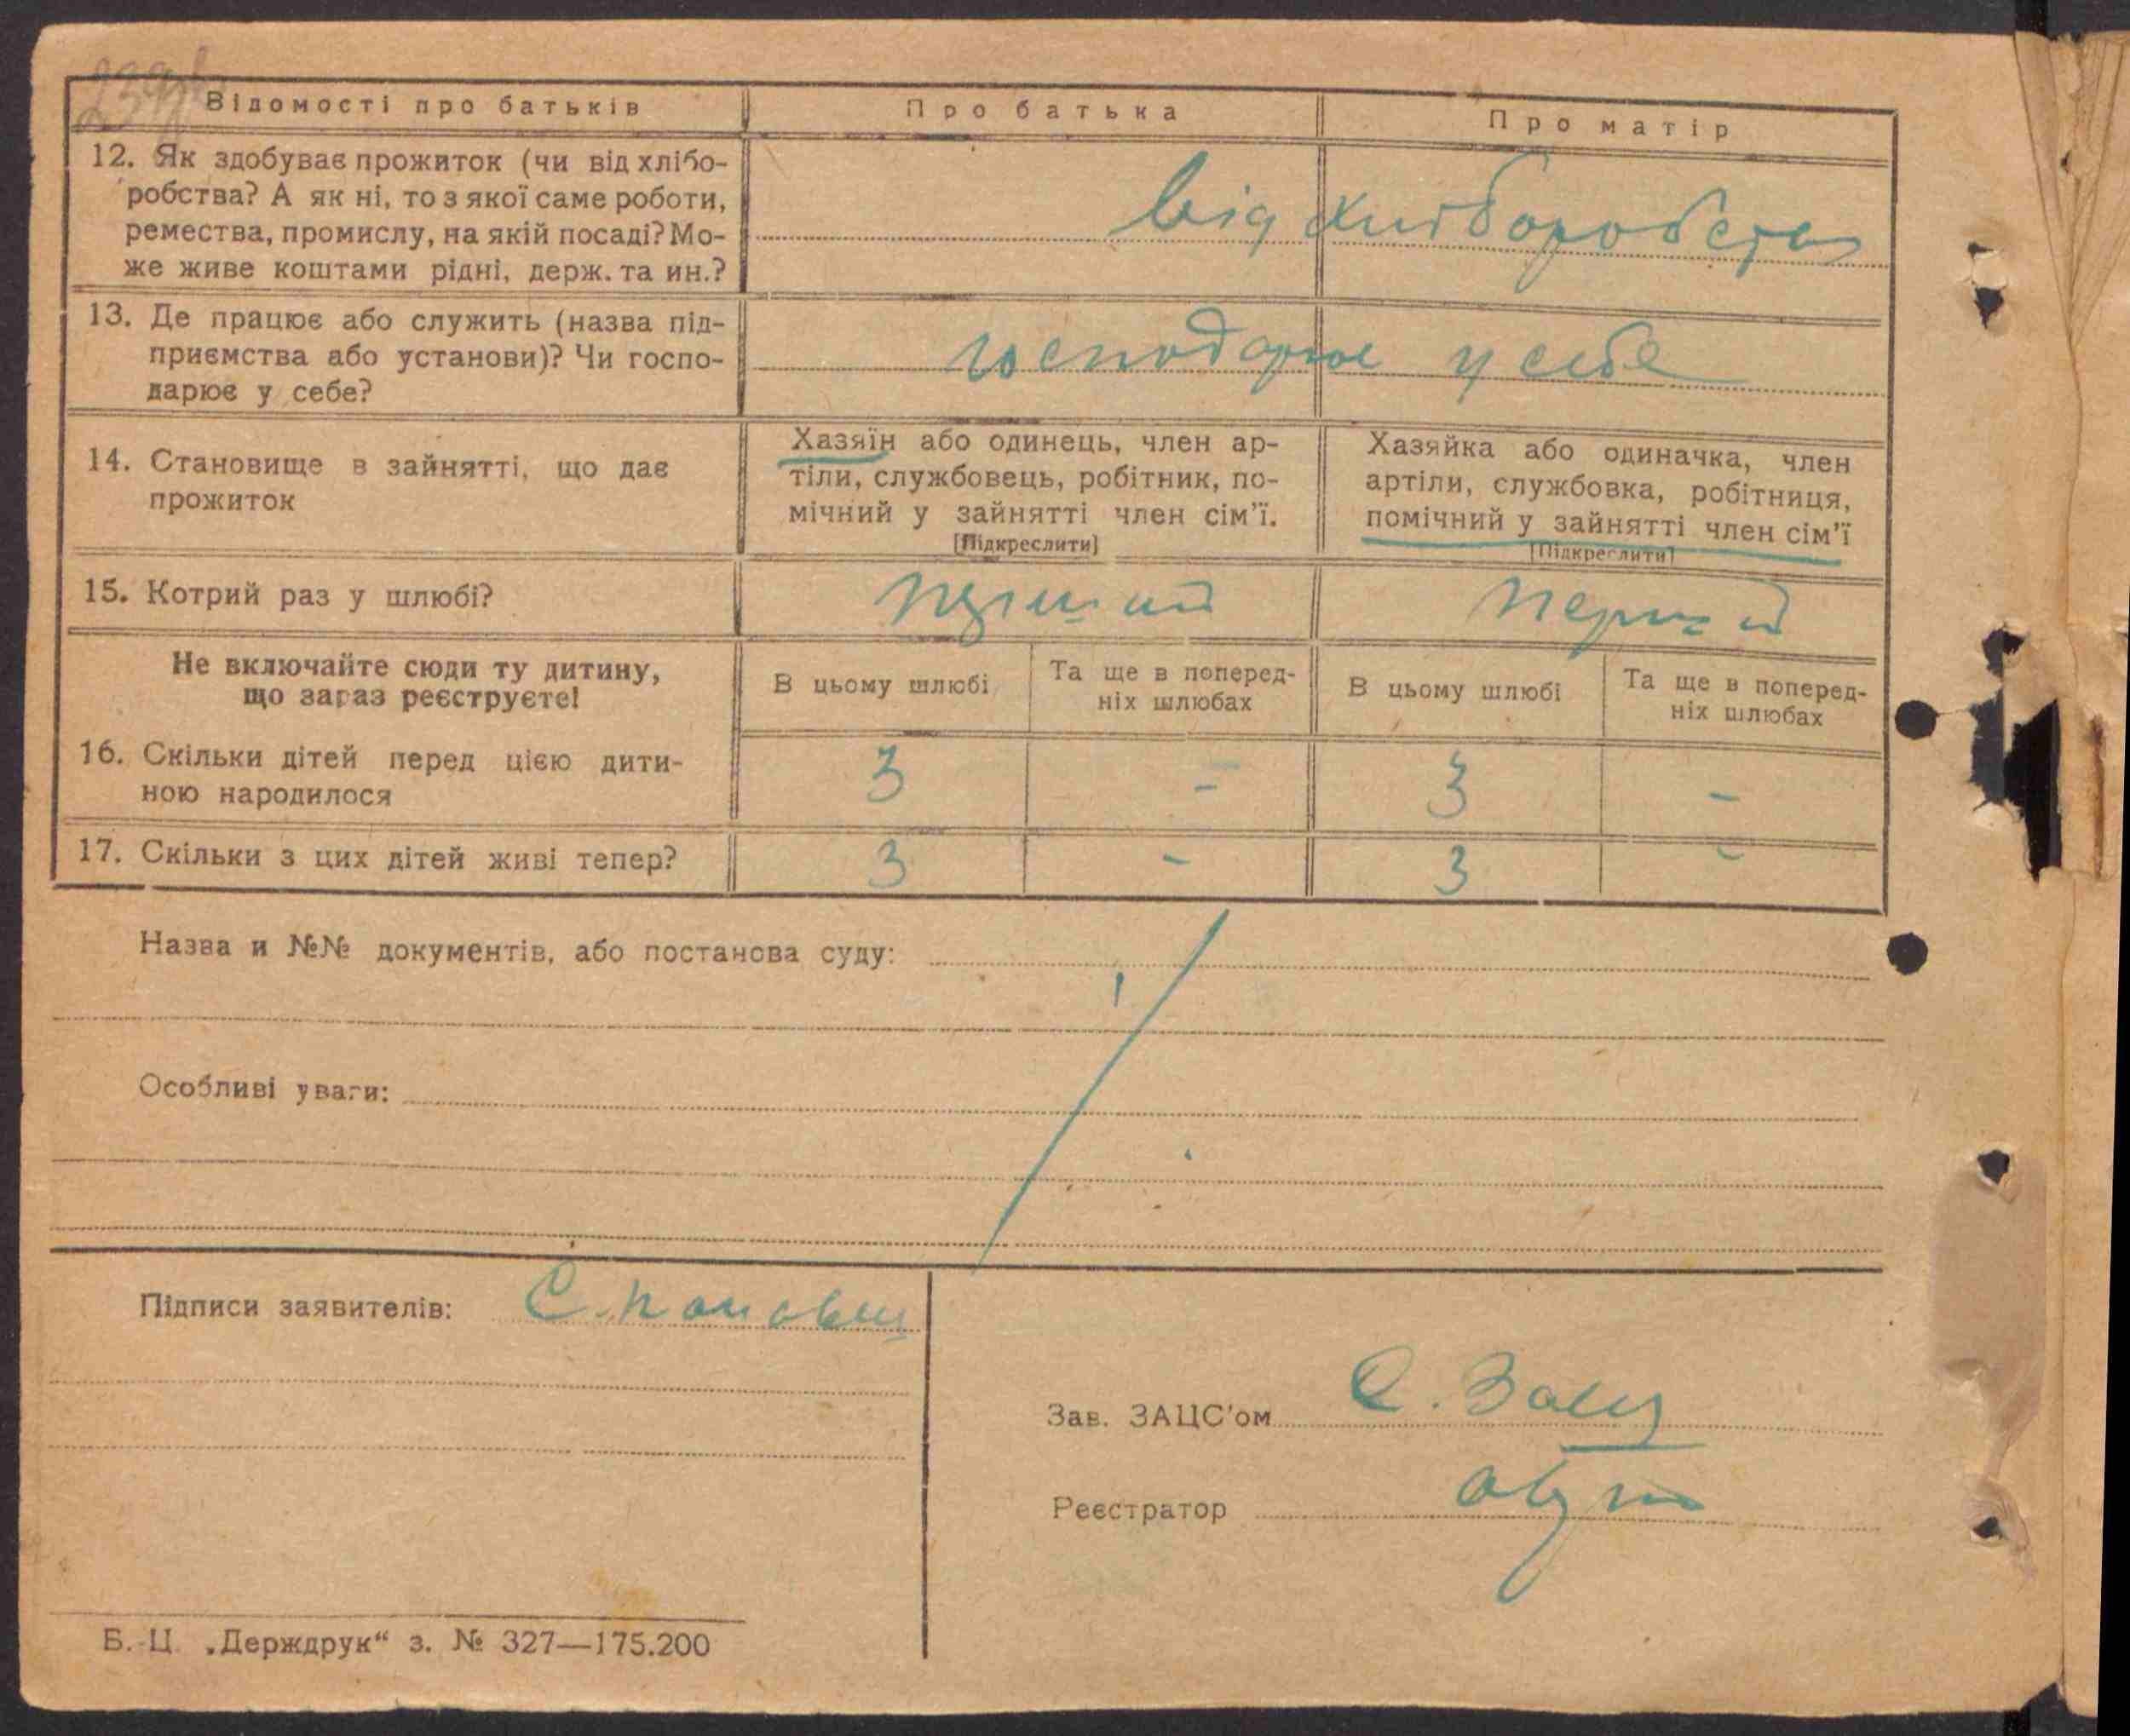 239
Відомості про батьків
Про батька
Про матір
12. Як здобуває прожиток (чи від хлібо-
робства? А як ні, то з якої саме роботи,
ремества, промислу, на якій посаді? Мо-
же живе коштами рідні, держ. та ин.?
від хліборобства
13. Де працює або служить (назва під-
приємства або установи)? Чи госпо-
дарює у себе?
господарює у себе
14. Становище в зайнятті, що дає
прожиток
Хазяїн або одинець, член ар-
тіли, службовець, робітник, по-
мічний у зайнятті член сім'ї.
[Підкреслити]
Хазяйка або одиначка, член
артіли, службовка, робітниця,
помічний у зайнятті член сім'ї
[Підкреслити]
15. Котрий раз у шлюбі?
перший
перший
Не включайте сюди ту дитину,
що зараз реєструєте!
В цьому шлюбі
Та ще в поперед-
ніх шлюбах
В цьому шлюбі
Та ще в поперед-
ніх шлюбах
16. Скільки дітей перед цією дити-
ною народилося
3 - 3 -
17. Скільки з цих дітей живі тепер?
3 - 3 -
Назва и №№ документів, або постанова суду:
Особливі уваги:
Підписи заявителів:
Зав. ЗАЦС'ом
Реєстратор
Б.-Ц. „Держдрук“ з. № 327—175.200